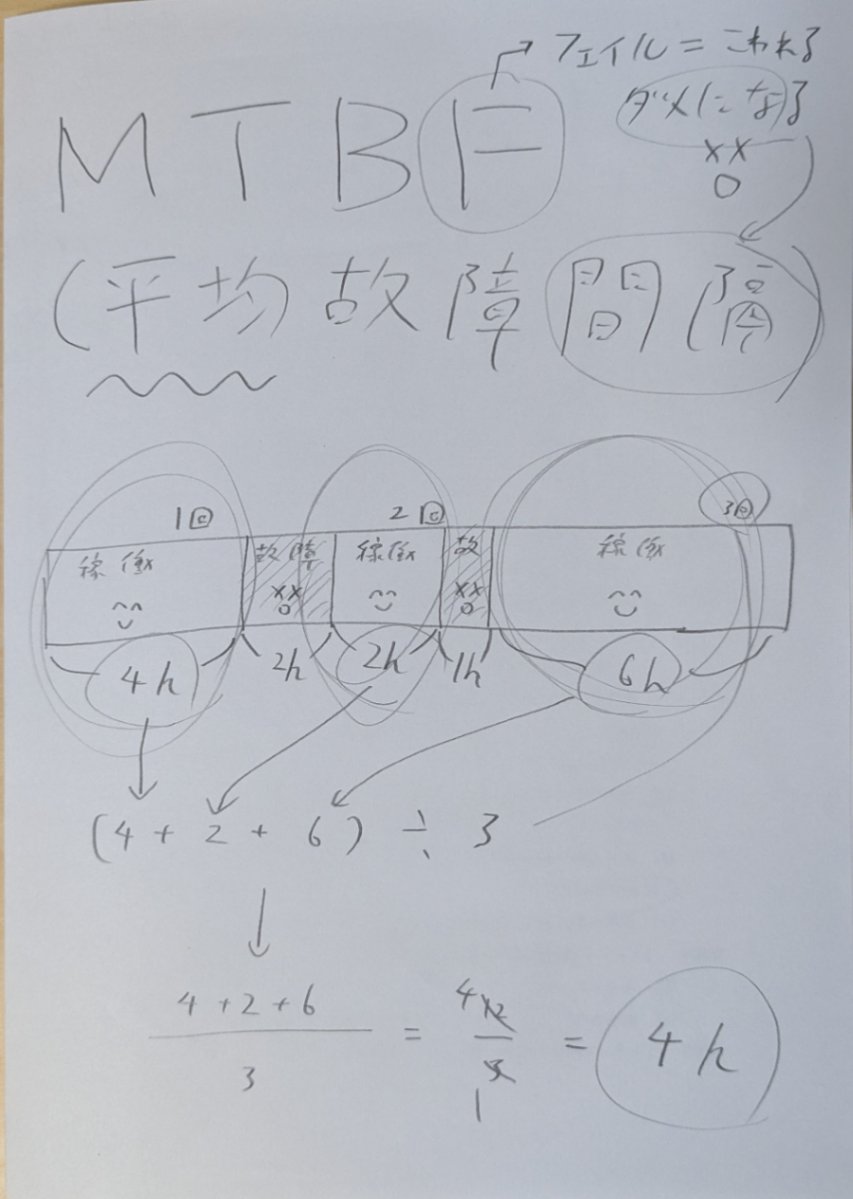 フェイル = こわれる
ダメになる
MTBF
(平均故障間隔)
1回 2回 3回
稼働 故障 稼働 故 稼働
4h 2h 2h 1h 6h
(4 + 2 + 6) ÷ 3
4 + 2 + 6
3
= 4 12 / 3 1 = 4h